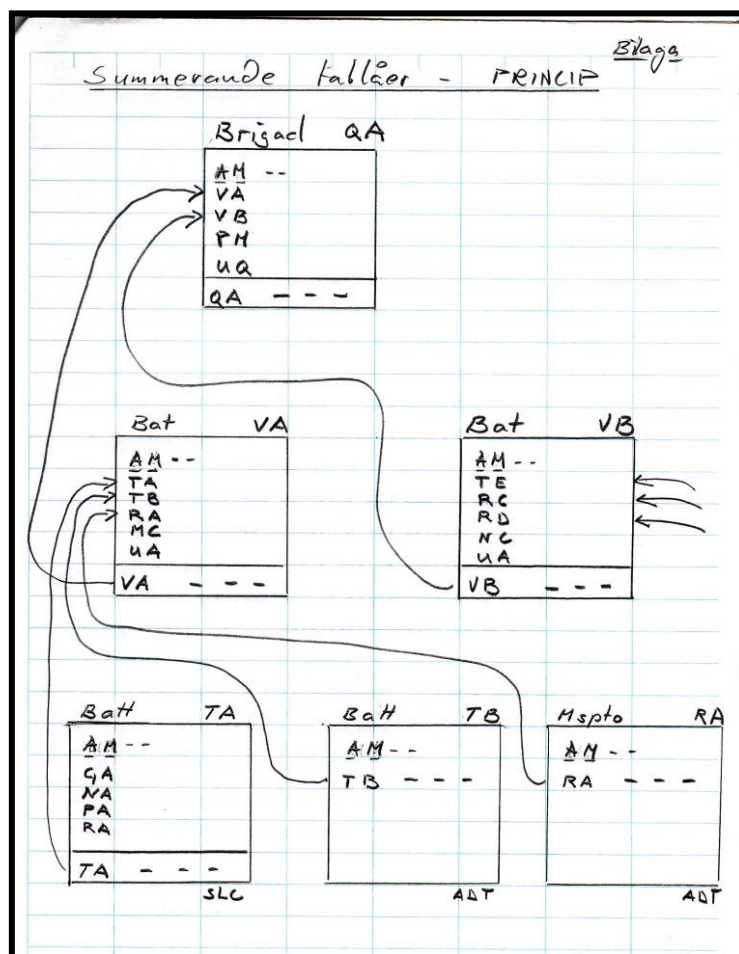 Bilaga
Summerande tablåer - PRINCIP
Brigad QA
AM --
VA
VB
PM
UQ
QA - - -
Bat VA
AM --
TA
TB
RA
MC
UA
VA - - -
Bat VB
AM --
TE
RC
RD
NC
UA
VB - - -
Batt TA
AM --
GA
NA
PA
RA
TA - - -
SLC
Batt TB
AM --
TB - - -
ADT
Mspto RA
AM --
RA - - -
ADT